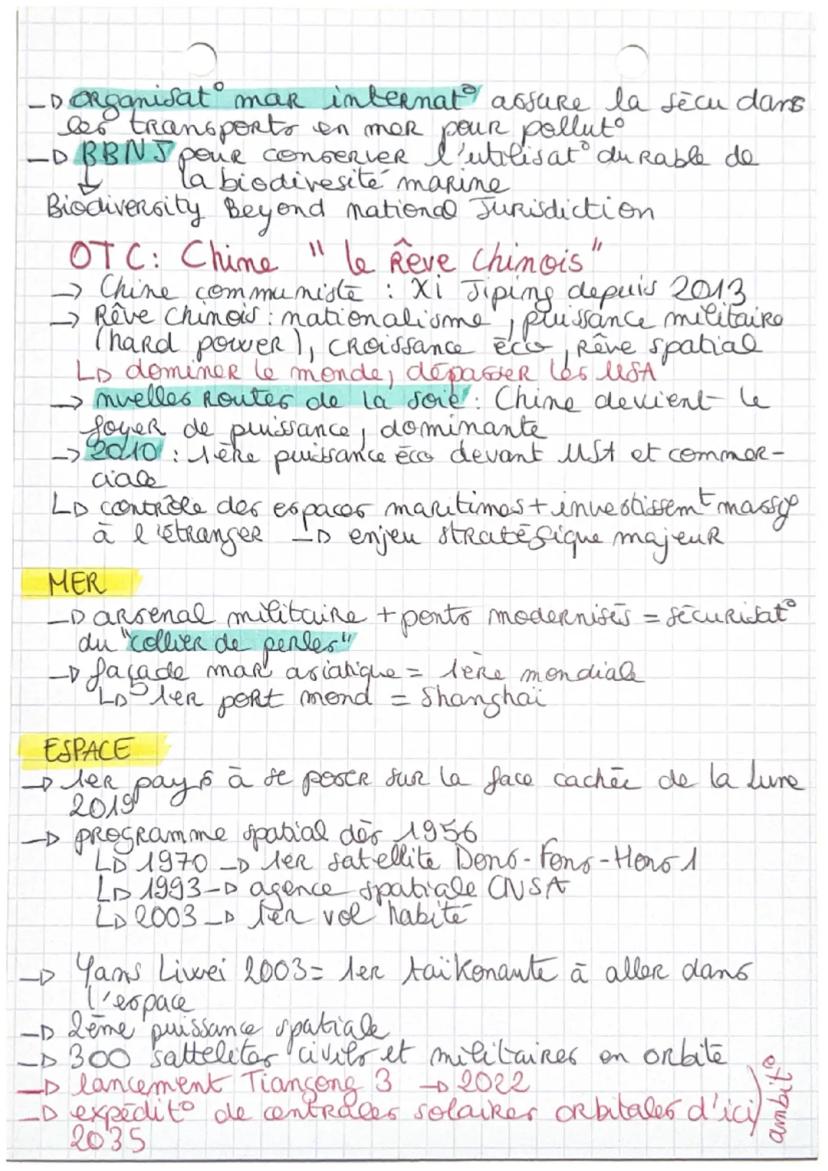 → organisat° mar internat° assure la sécu dans
les transports en mer pour pollut°
→ BBNJ pour conserver l'utilisat° durable de
↓ la biodivesité marine
Biodiversity Beyond national Jurisdiction
OTC: Chine " le Rêve chinois"
→ Chine communiste : Xi Jiping depuis 2013
→ Rêve chinois : nationalisme, puissance militaire
(hard power), croissance éco, Rêve spatial
↳ dominer le monde, dépasser les USA
→ nvelles Routes de la soie : Chine devient le
foyer de puissance, dominante
→ 2010 : 1ère puissance éco devant USA et commer-
ciale
↳ contrôle des espaces maritimes + investissemt massif
à l'étranger → enjeu stratégique majeur
MER
→ arsenal militaire + ports modernisés = sécurisat°
du "collier de perles"
→ façade mar asiatique = 1ère mondiale
↳ 1er port mond = Shanghaï
ESPACE
→ 1er pays à se poser sur la face cachée de la lune
2019
→ programme spatial dès 1956
↳ 1970 → 1er satellite Dong-Fong-Hong 1
↳ 1993 → agence spatiale CNSA
↳ 2003 → 1er vol habité
→ Yang Liwei 2003 = 1er taïkonaute à aller dans
l'espace
→ 2ème puissance spatiale
→ 300 sattelites civils et militaires en orbite
→ lancement Tiangong 3 → 2022
→ expédit° de centrales solaires orbitales d'ici
2035
ambit°